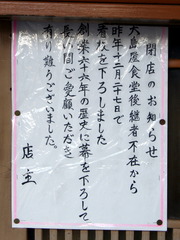 閉店のお知らせ
大島屋食堂後継者不在から
昨年十二月二十七日で
看板を下ろしました
創業六十六年の歴史に幕を下ろして
長い間ご愛顧いただき
有り難うございました。
店主